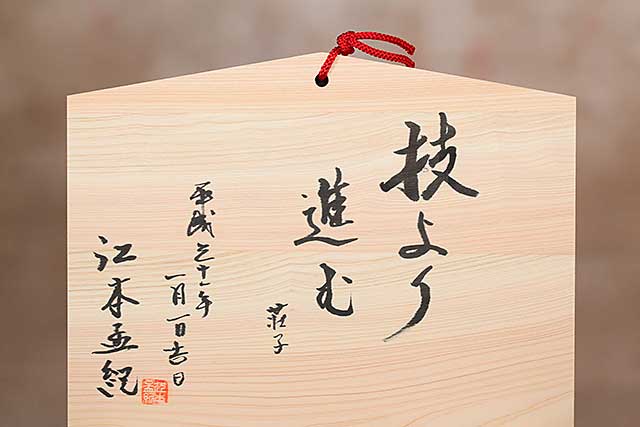 技より
進む
荘子
平成三十一年
一月一日吉日
江本孟紀